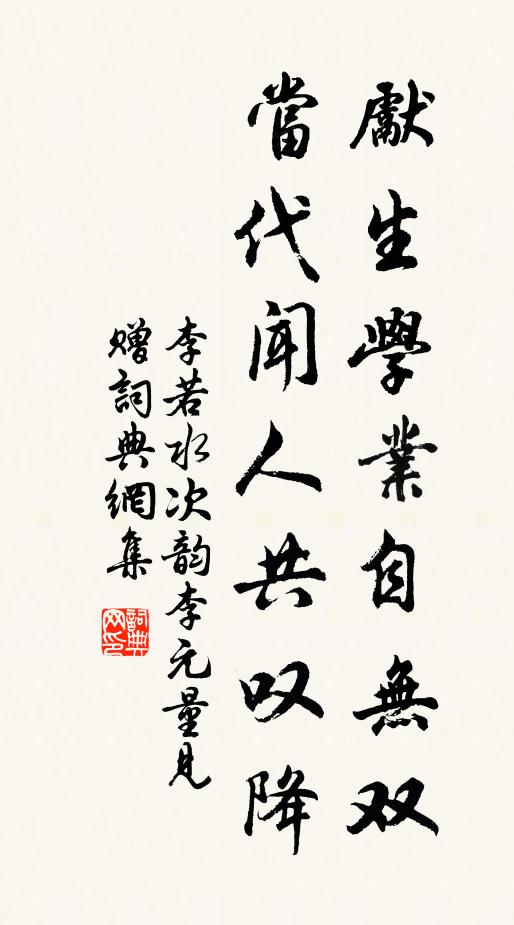 獻生學業自無双
當代聞人共叹降
李若水次韵李元量見
赠詞典網集
詞典网印